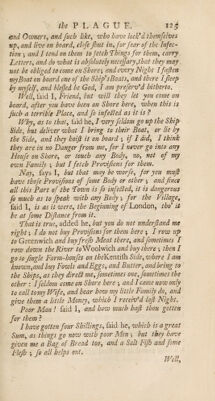 the PLAGUE. 125
and Owners, and such like, who have lock'd themselves
up, and live on board, close shut in, for fear of the Infec-
tion; and I tend on them to fetch Things for them, carry
Letters, and do what is absolutely necessary, that they may
not be obliged to come on Shore; and every Night I fasten
my Boat on board one of the Ship's Boats, and there I sleep
by myself, and blessed be God, I am preserv'd hitherto.
Well, said I, Friend, but will they let you come on
board, after you have been on Shore here, when this is
such a terrible Place, and so infected as it is?
Why, as to that, said he, I very seldom go up the Ship
Side, but deliver what I bring to their Boat, or lie by
the Side, and they hoist it on board; if I did, I think
they are in no Danger from me, for I never go into any
House on Shore, or touch any Body, no, not of my
own Family; but I fetch Provisions for them.
Nay, says I, but that may be worse, for you must
have those Provisions of some Body or other; and since
all this Part of the Town is so infected, it is dangerous
so much as to speak with any Body; for the Village,
said I, is as it were, the Beginning of London, tho' it
be at some Distance from it.
That is true, added he, but you do not understand me
right; I do not buy Provisions for them here; I row up
to Greenwich and buy fresh Meat there, and sometimes I
row down the River to Woolwich and buy there; then I
go to single Farm-houses on the Kentish Side, where I am
known, and buy Fowls and Eggs, and Butter, and bring to
the Ships, as they direct me, sometimes one, sometimes the
other: I seldom come on Shore here; and I came now only
to call to my Wife, and hear how my little Family do, and
give them a little Money, which I receiv'd last Night.
Poor Man! said I, and how much hast thou gotten
for them?
I have gotten four Shillings, said he, which is a great
Sum, as things go now with poor Men; but they have
given me a Bag of Bread too, and a Salt Fish and some
Flesh; so all helps out.
Well,